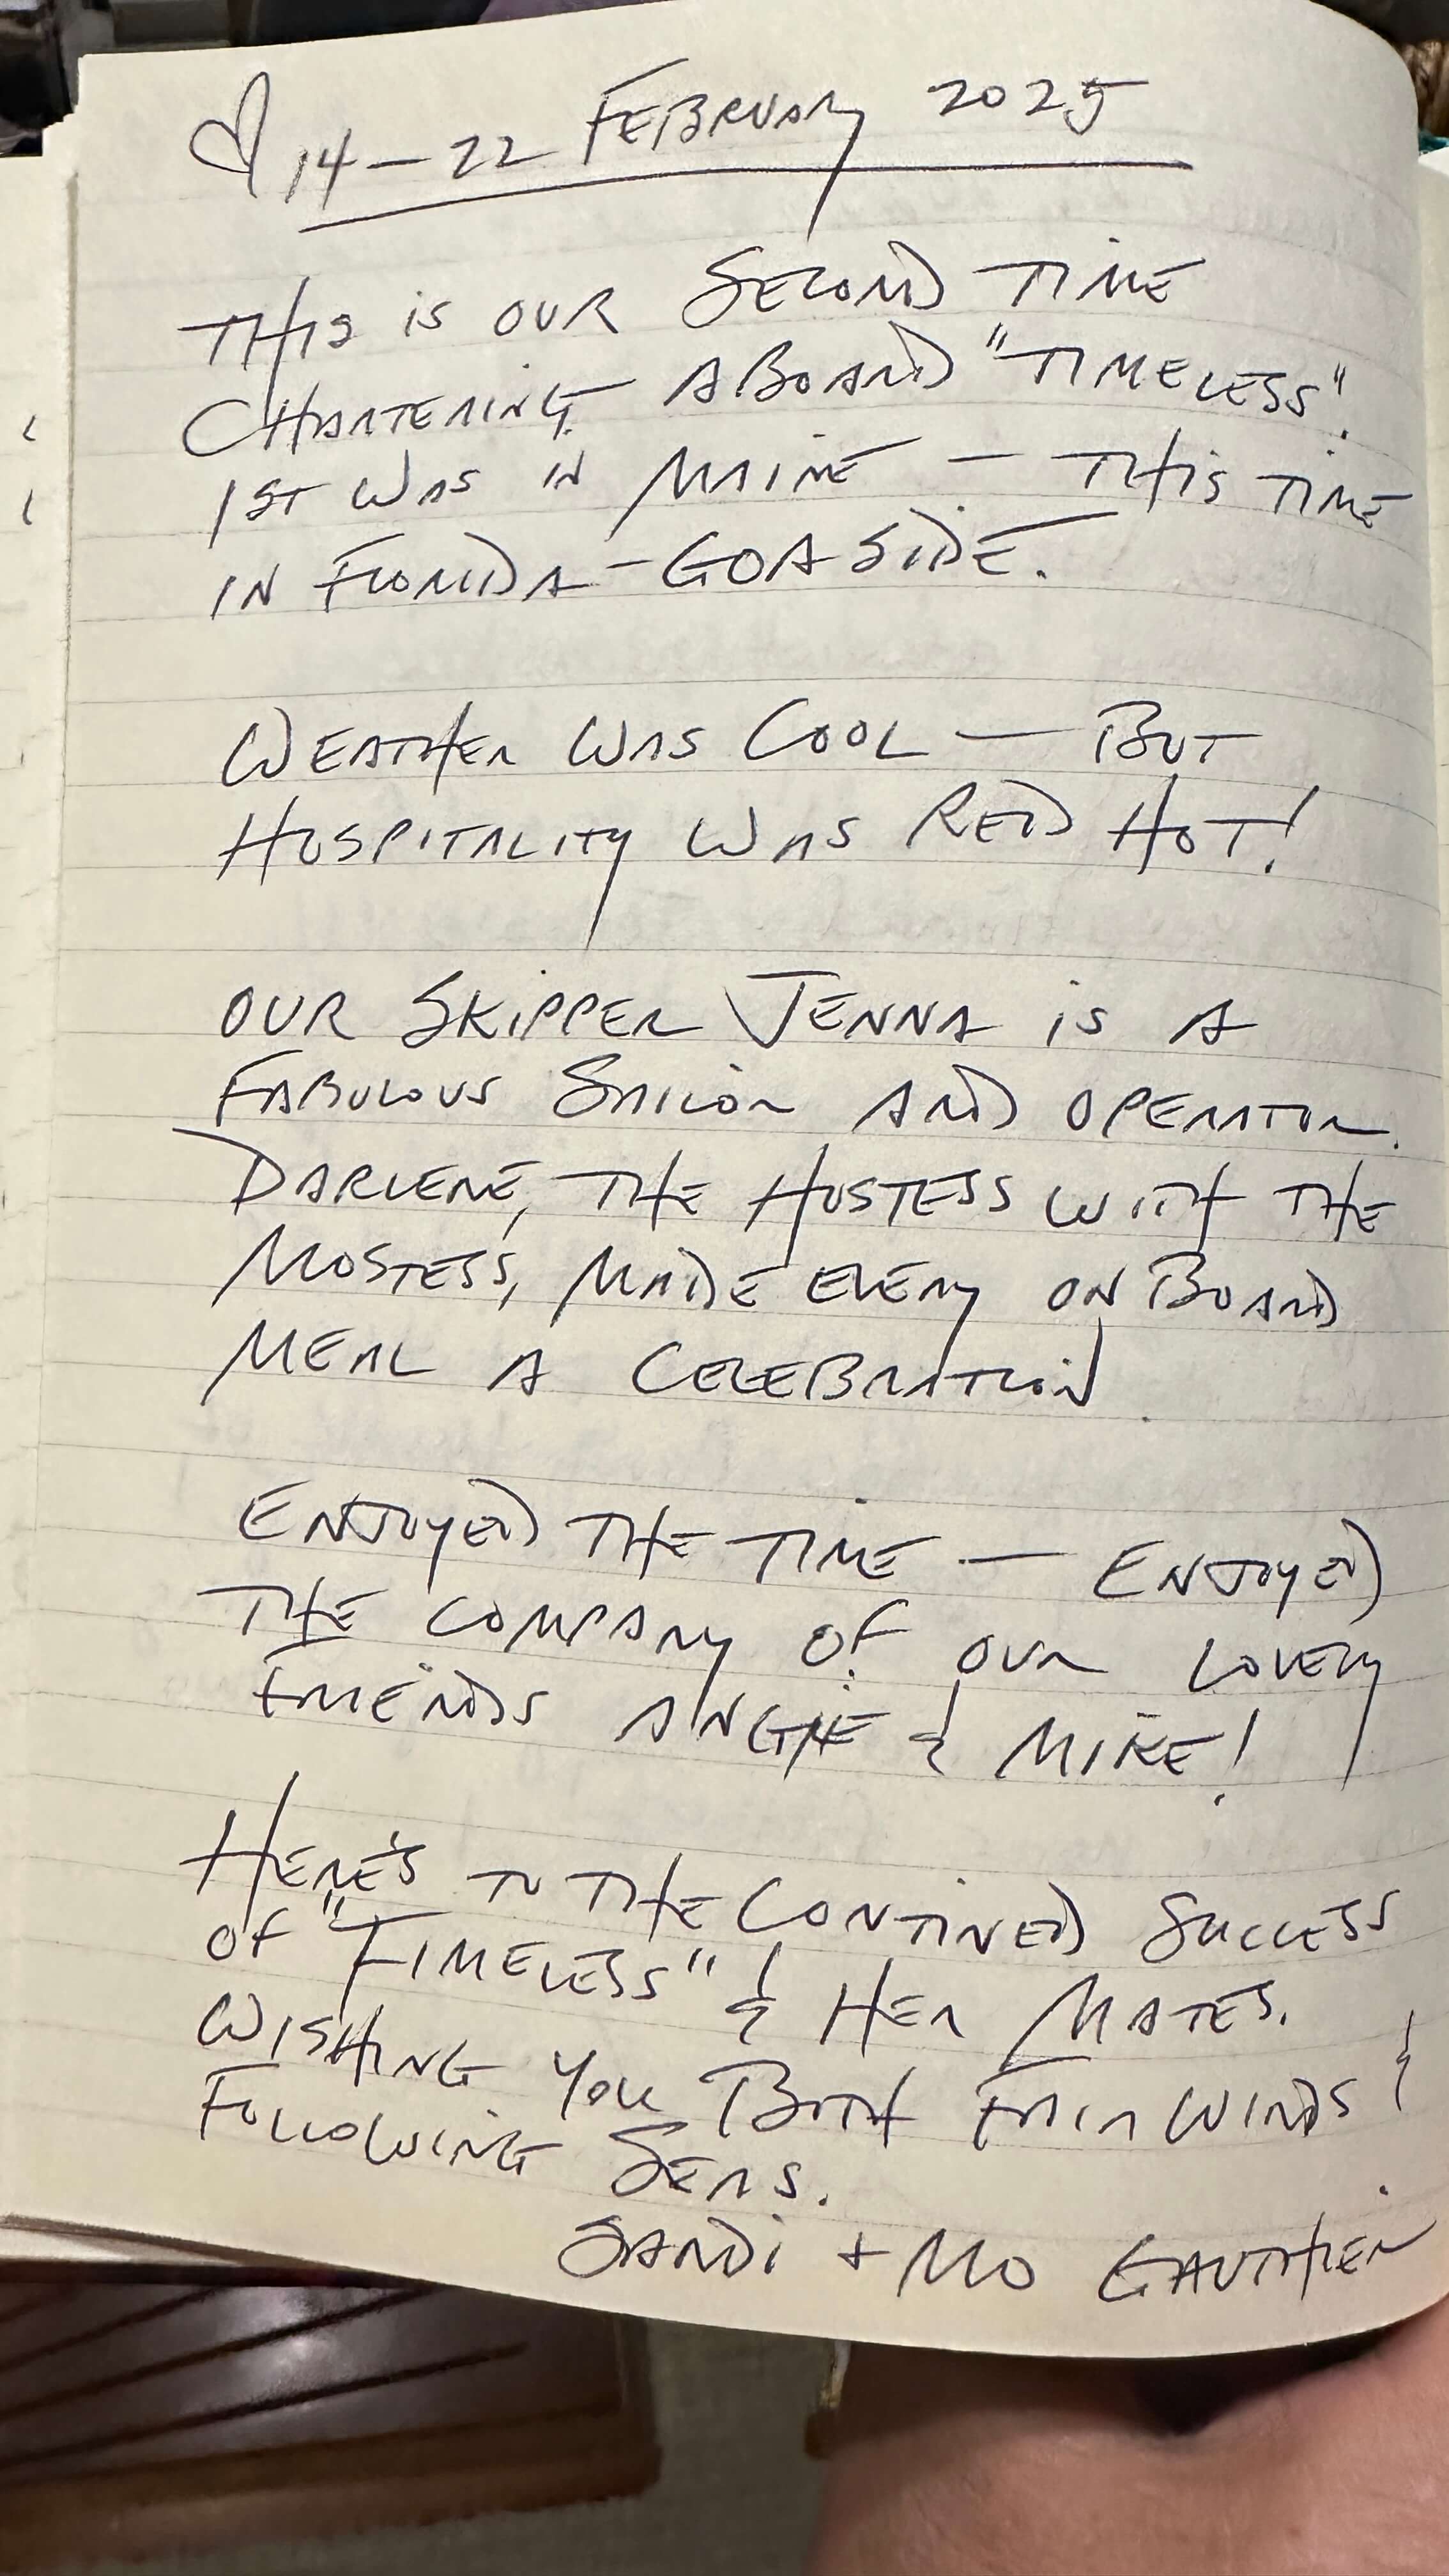 ♡ 14 – 22 FEBRUARY 2025
THIS IS OUR SECOND TIME
CHARTERING ABOARD "TIMELESS".
1ST WAS IN MAINE — THIS TIME
IN FLORIDA – GOA SIDE.
WEATHER WAS COOL — BUT
HOSPITALITY WAS RED HOT!
OUR SKIPPER JENNA IS A
FABULOUS SAILOR AND OPERATOR.
DARLENE, THE HOSTESS WITH THE
MOSTESS, MADE EVERY ON BOARD
MEAL A CELEBRATION.
ENJOYED THE TIME — ENJOYED
THE COMPANY OF OUR LOVELY
FRIENDS ANGIE & MIKE!
HERE'S TO THE CONTINED SUCCESS
OF "TIMELESS" & HER MATES.
WISHING YOU BOTH FAIR WINDS &
FOLLOWING SEAS.
SANDI + MO GAUTHIER